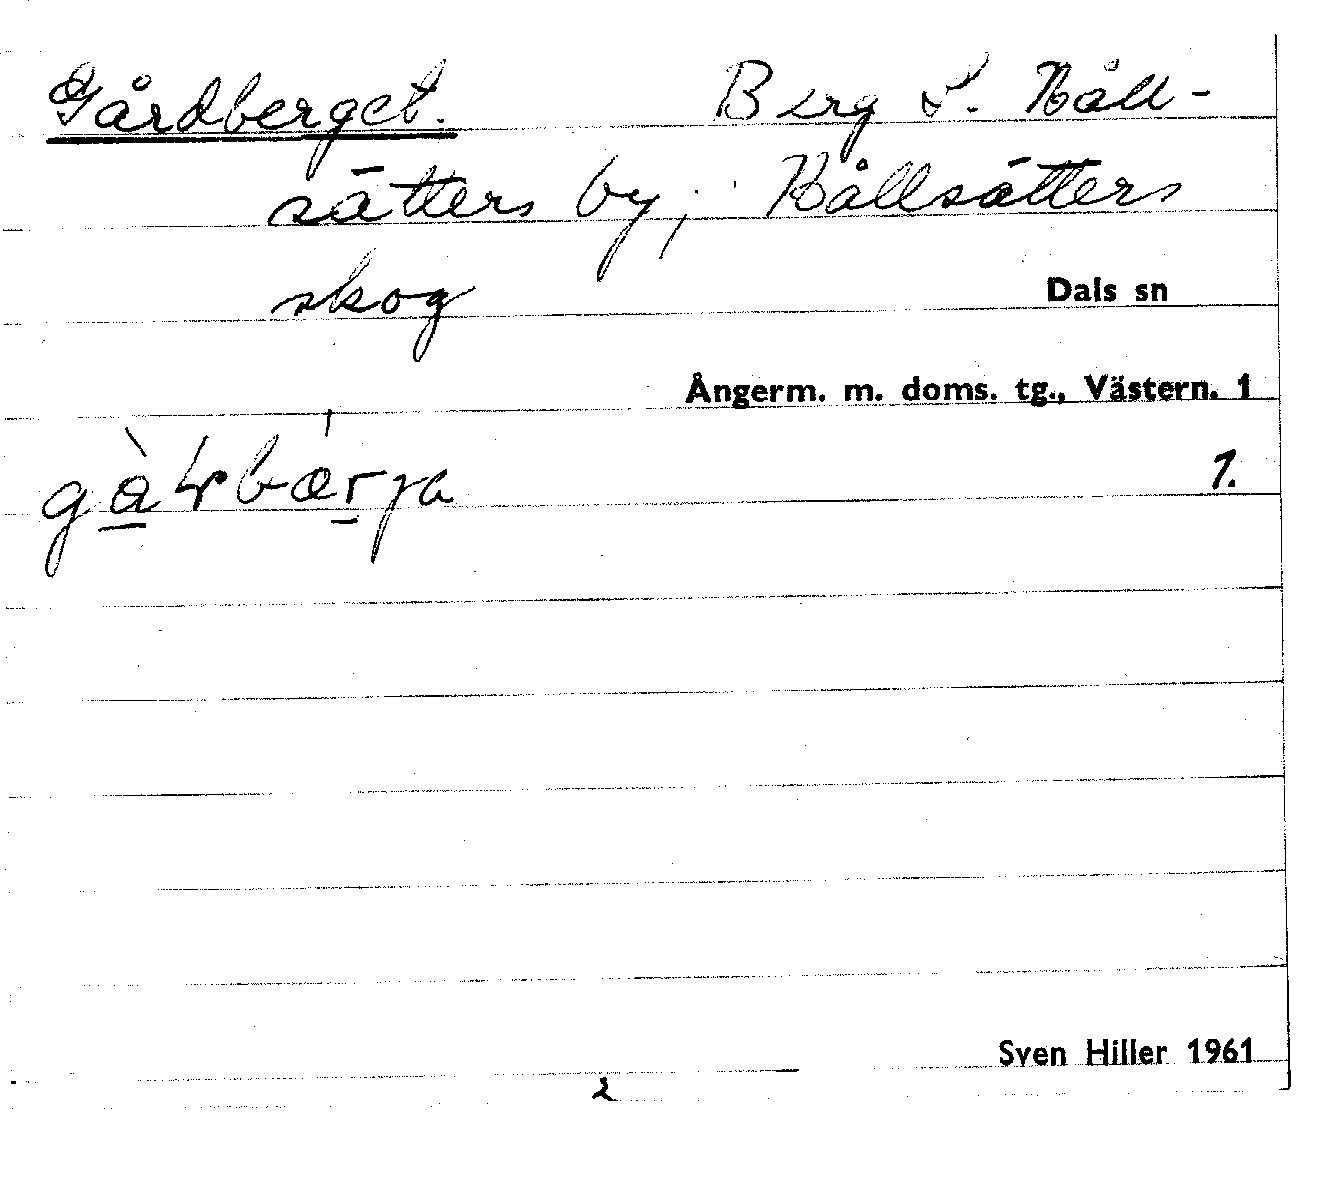 Gårdberget. Berg S. Kåll-
sätters by, Kållsätters
skog
Dals sn
Ångerm. m. doms. tg., Västern. 1
1.
Sven Hiller 1961
2